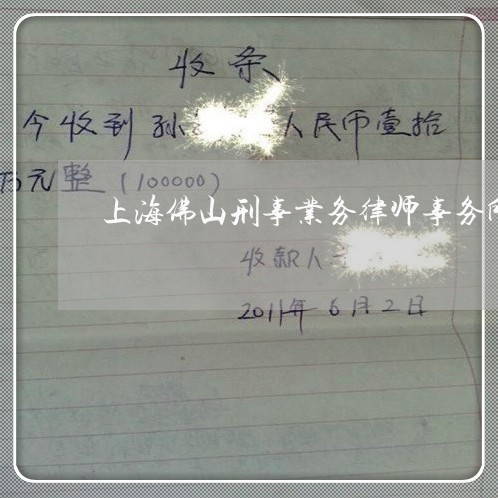 收条
今收到孙 人民币壹拾
万元整（100000）
上海佛山刑事業务律师事务
收款人
2011年6月2日